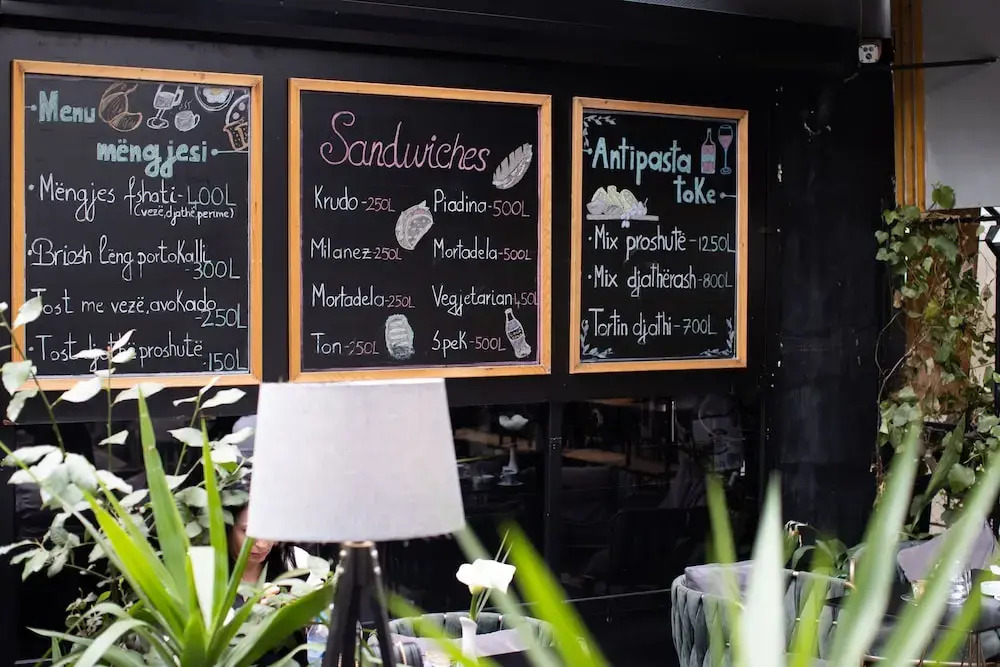 Menu
mëngjesi
Mëngjes fshati-400L
(vezë,djathë,perime)
Briosh lëng portokalli
-300L
Tost me vezë,avokado
-250L
Tost djathë proshutë
-150L
Sandwiches
Krudo-250L
Milanez-250L
Mortadela-250L
Ton-250L
Piadina-500L
Mortadela-500L
Vegjetarian-450L
Spek-500L
Antipasta
toke
Mix proshutë-1250L
Mix djathërash-800L
Tortin djathi-700L